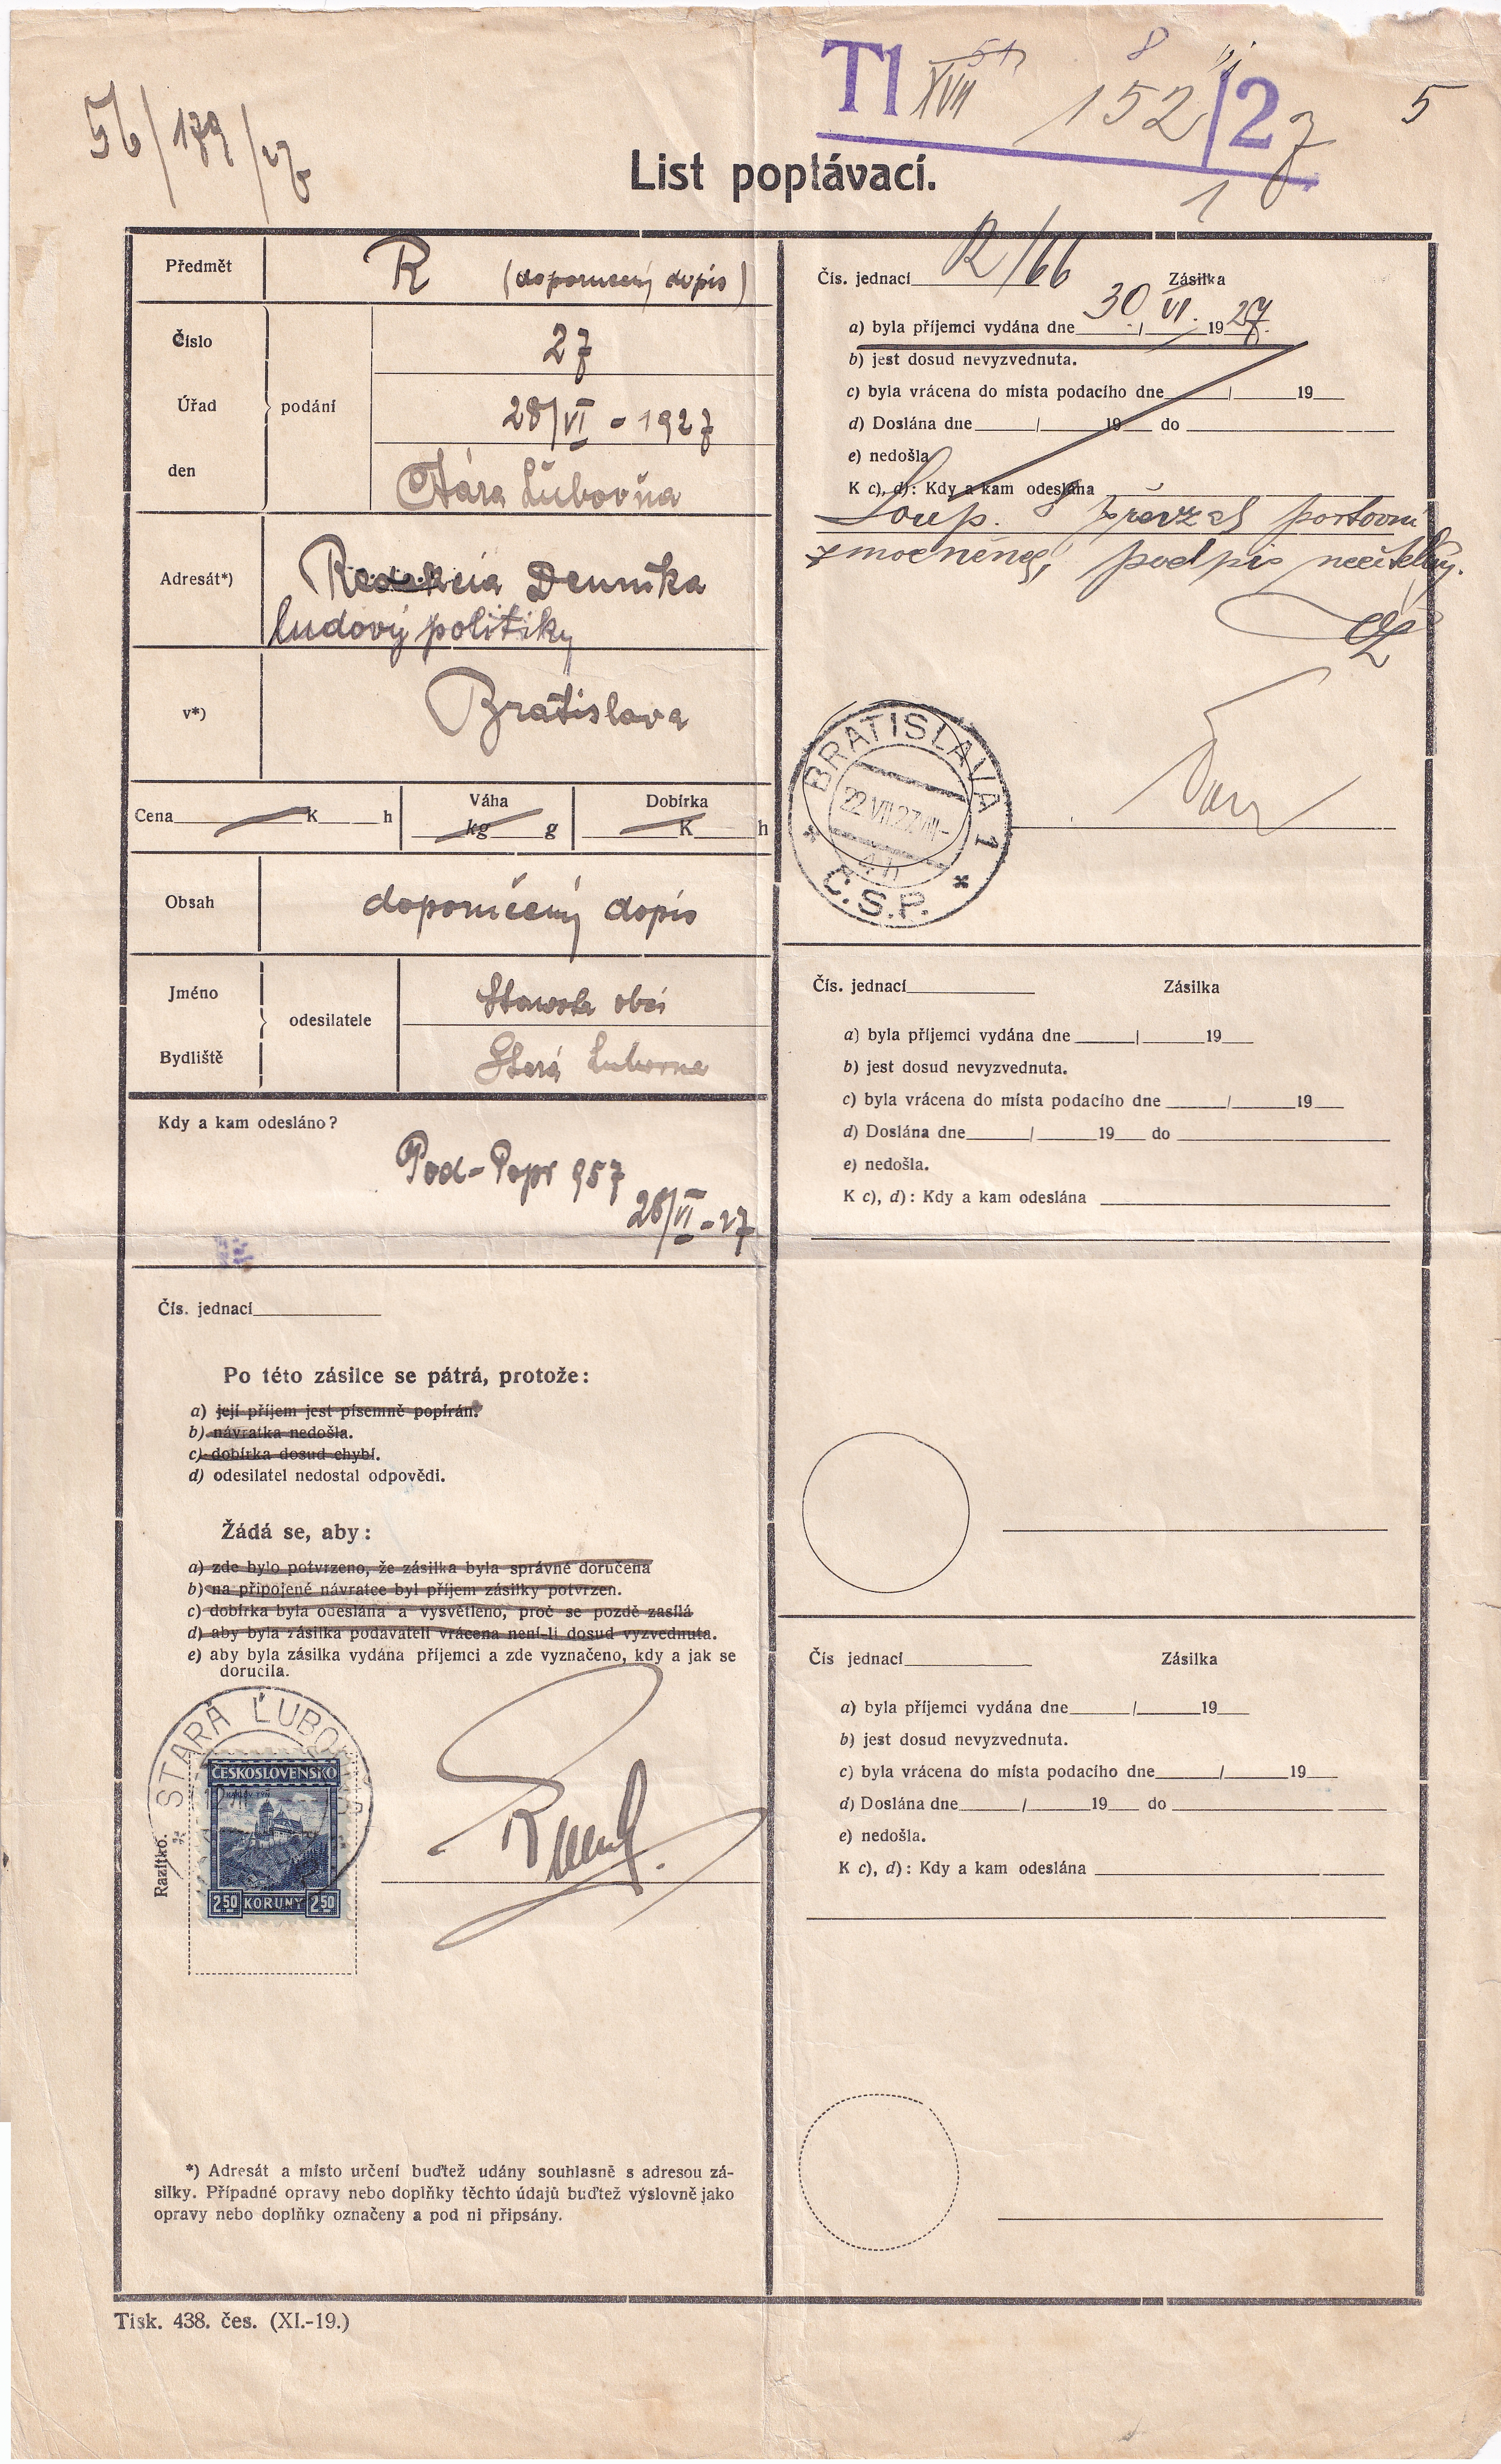 56/179/27
T1 XVII 152/27
5
1
List poptávací.
Předmět
R (doporučený dopis)
Číslo
27
Úřad podání
28/VI - 1927
den
Stára Ľubovňa
Adresát*)
Redakcia Dennika
ludový politiky
v*)
Bratislava
Cena K h
Váha
kg g
Dobírka
K h
Obsah
doporučený dopis
Jméno
odesilatele
Starosta obci
Bydliště
Stará Lubovna
Kdy a kam odesláno?
Pod-Popr 957
28/VI-27
Čís. jednací
Po této zásilce se pátrá, protože:
a) její příjem jest písemně popírán.
b) návratka nedošla.
c) dobírka dosud chybí.
d) odesilatel nedostal odpovědi.
Žádá se, aby:
a) zde bylo potvrzeno, že zásilka byla správně doručena
b) na připojené návratce byl příjem zásilky potvrzen.
c) dobírka byla odeslána a vysvětleno, proč se pozdě zasílá
d) aby byla zásilka podavateli vrácena není-li dosud vyzvednuta.
e) aby byla zásilka vydána příjemci a zde vyznačeno, kdy a jak se
dorucila.
STARÁ ĽUBO
ČESKOSLOVENSKO
2 50 KORUNY 2 50
Razítko.
*) Adresát a místo určení buďtež udány souhlasně s adresou zá-
silky. Případné opravy nebo doplňky těchto údajů buďtež výslovně jako
opravy nebo doplňky označeny a pod ni připsány.
Tisk. 438. čes. (XI.-19.)
Čís. jednací R/66 Zásilka
a) byla příjemci vydána dne 30/VI. 1927.
b) jest dosud nevyzvednuta.
c) byla vrácena do místa podacího dne / 19
d) Doslána dne / 19 do
e) nedošla
K c), d): Kdy a kam odeslána
převzal poštovní
zmocněnec, podpis nečitelný.
BRATISLAVA 1
22.VII.27
Č.S.P.
Čís. jednací Zásilka
a) byla příjemci vydána dne / 19
b) jest dosud nevyzvednuta.
c) byla vrácena do místa podacího dne / 19
d) Doslána dne / 19 do
e) nedošla.
K c), d): Kdy a kam odeslána
Čís jednací Zásilka
a) byla příjemci vydána dne / 19
b) jest dosud nevyzvednuta.
c) byla vrácena do místa podacího dne / 19
d) Doslána dne / 19 do
e) nedošla.
K c), d): Kdy a kam odeslána